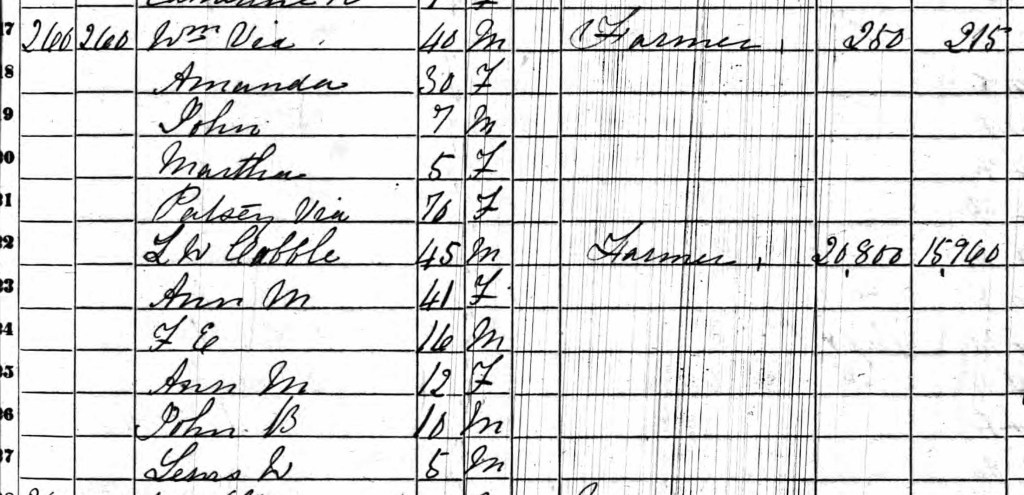 7 260 260 Wm Via. 40 M Farmer, 250 215
8 Amanda 30 F
9 John 7 M
30 Martha 5 F
31 Patsey Via 70 F
32 L W Cobble 45 M Farmer, 20,800 15,960
33 Ann M 41 F
34 F E 16 M
35 Ann M 12 F
36 John B 10 M
37 Lewis W 5 M